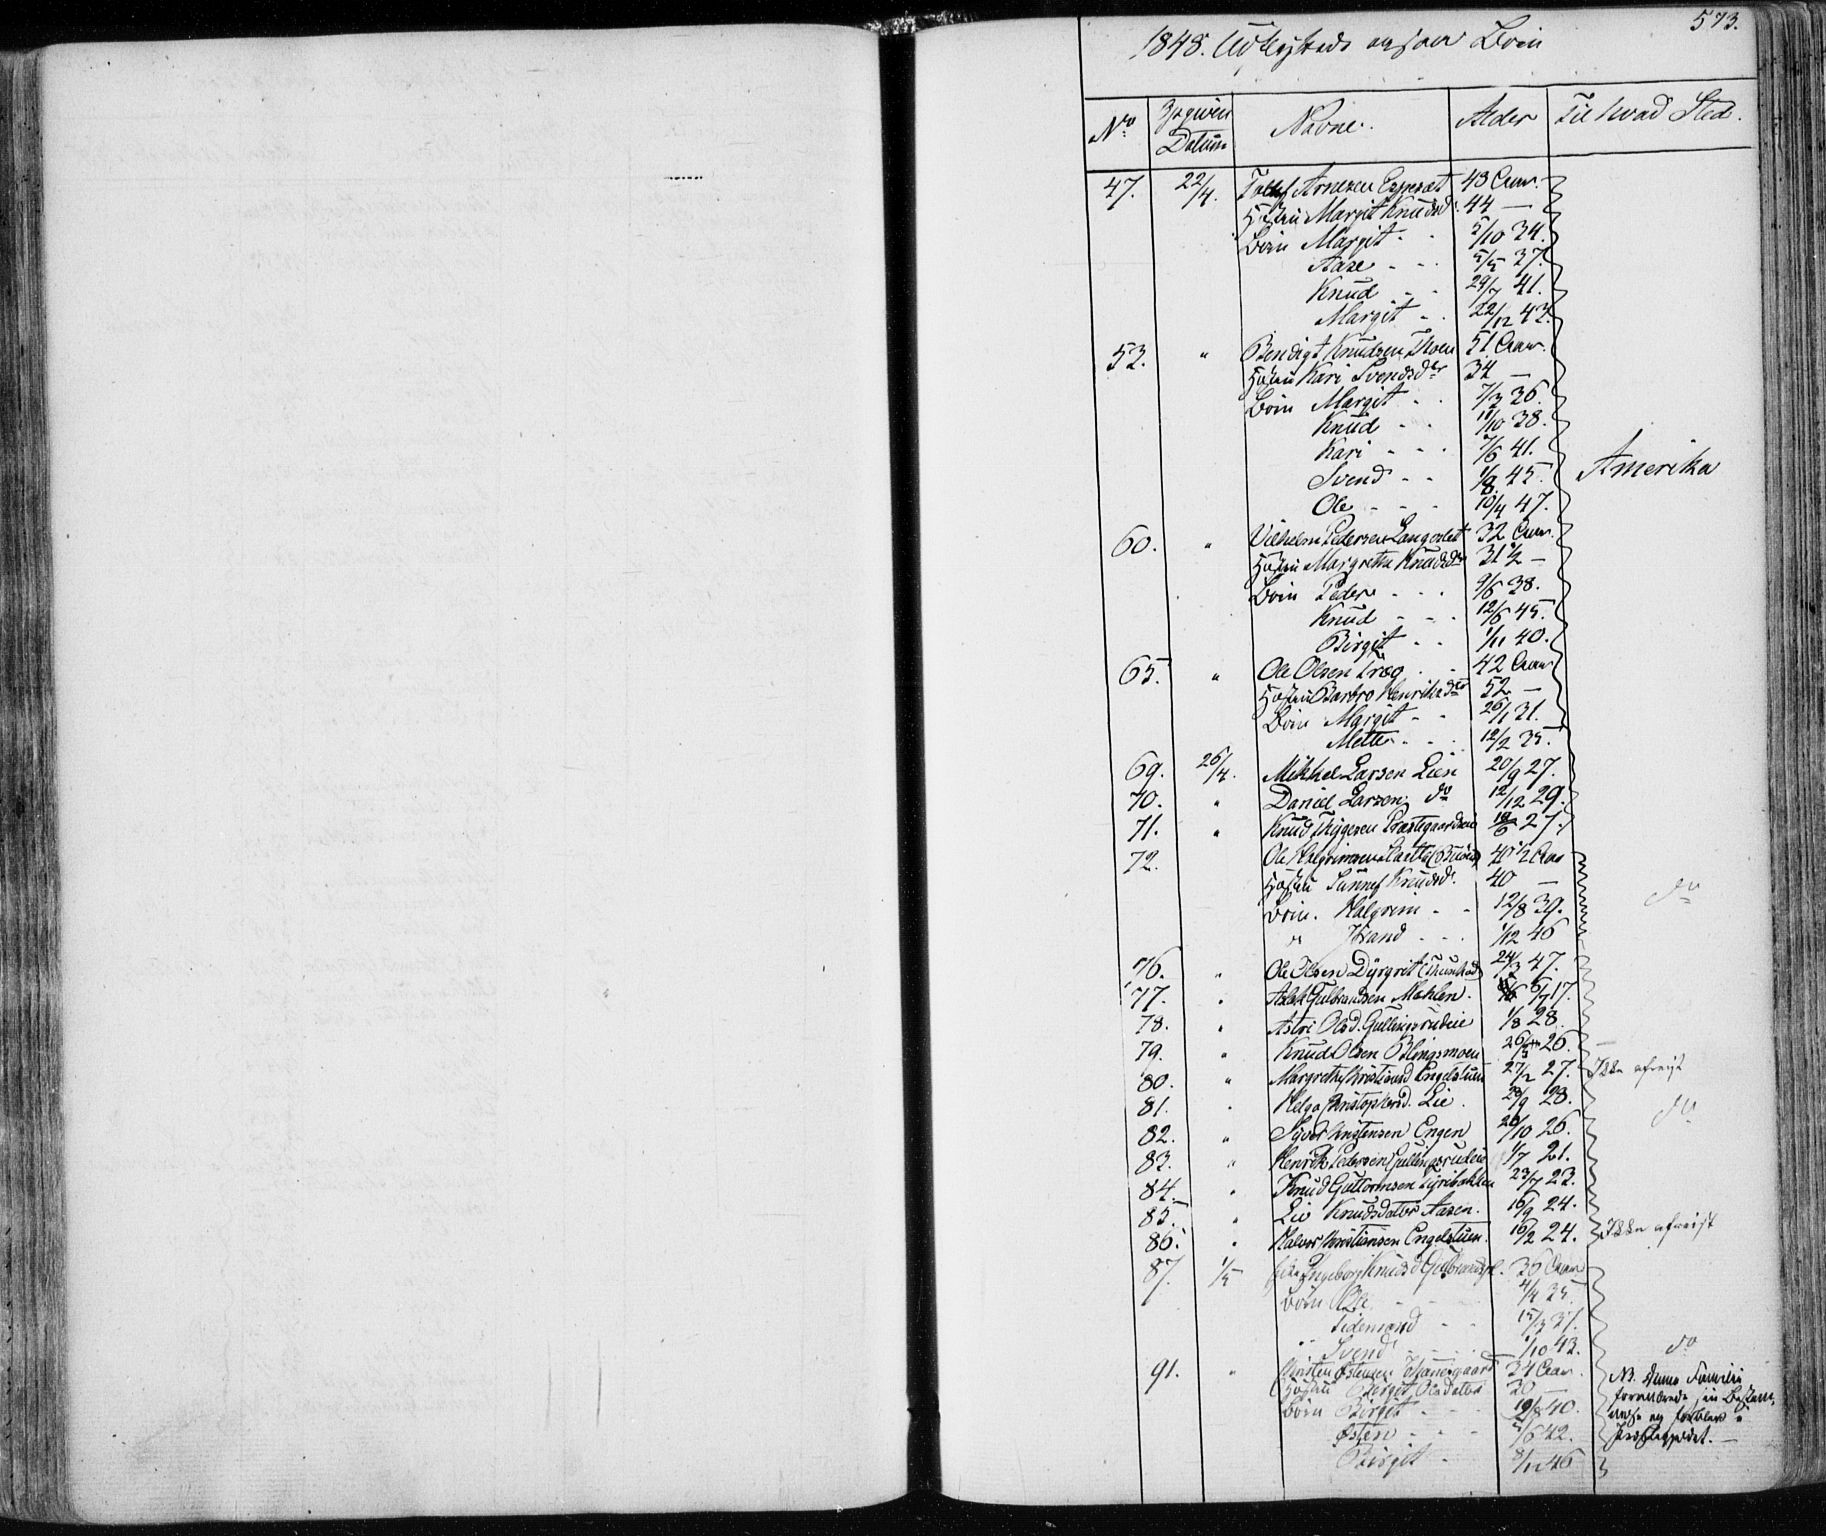 573.
1848. Udflyttede og paa Børn
No Opgivens Datum Navne. Alder Til hvad Sted.
47. 22/4. Tollef Arnesen Espesæt 43 Aar.
Hustru Margit Knudsd. 44 —
Børn Margit - - 5/10 34.
Aase - - 5/5 37.
Knud - - 29/7 41.
Margit - - 22/12 43.
53. " Bendigt Knudsen Moen 51 Aar.
Hustru Kari Svendsdr 34 —
Børn Margit - - 7/3 36.
Knud - - 11/10 38.
Kari - - - 7/6 41.
Svend - - 1/8 45.
Amerika
Ole - - - 10/4 47.
60. " Vilhelm Pedersen Langeslet 32 Aar.
Hustru Margrethe Knudsdr 31 1/2 —
Børn Peder - - - 9/6 38.
Knud - - - 12/6 45.
Birgit - - 1/11 40.
65. " Ole Olsen Træg - - 42 Aar
Hustru Barbro Henriksdtr 52 —
Børn Margit - - 26/1 31.
Mette - - - 12/2 35.
69. 26/4. Mikkel Larsen Lien 20/9 27.
70. " Daniel Larsen do 12/12 29.
71. " Knud Thygesen Præstegaardseie 18/6 27.
72. Ole Halgrimsen 40 1/2 Aar
Hustru Sunnef Knudsdr. 40 —
do
Børn. Halgrim - - 12/8 39.
" - - - 1/12 46
76. " Ole Olsen Dyrgrit 24/3 47.
77. " Aslak Gulbrandsen Mæhlen. 6/7 17.
78. " Astri Olsd. Gullingsrudeie 1/8 28.
79. " Knud Olsen Blingsmoen 26/3 26.
80. " Margrethe Kristiansd Engelstuen 27/2 27. Ikke afreist
81. " Helga Christophersd. Lie. 29/9 28. do
82. " Syver Kristensen Engen 20/10 26.
83. " Henrik Pedersen Gullingsrudeie 1/7 21.
84. " Knud Guttormsen Tyribakken 23/7 23.
85. " Liv Knudsdater Aasen. 16/9 24.
86. " Halvor Kristiansen Engelstuen. 16/2 24. Ikke afreist
87. 1/5 Enke Ingeborg Knudsd 36 Aar
Børn Ole - - 4/4 35.
Tidemand - - 15/3 37.
" Svend - - 1/10 43. do
91. " Kirsten Østensen 34 Aar.
Hustru Birgit Olsdatter 30 —
Børn Birgit - - - 19/8 40.
Østen - - - 5/6 42.
Birgit - 8/11 46
NB. Denne Familie
forandrede sin Bestem-
melse og forblev i
Præstegjeldet. —